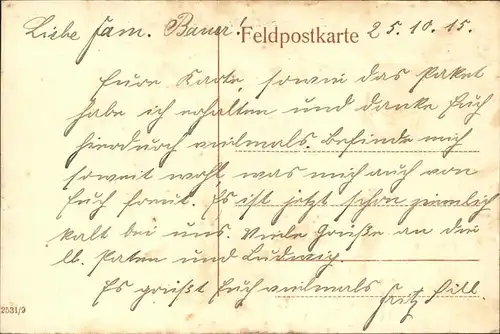 Liebe Fam. Bauer! Feldpostkarte 25.10.15.
Eure Karte, sowie das Paket
habe ich erhalten und danke Euch
hierdurch vielmals. Befinde mich
soweit wohl, was mich auch von
Euch freut. Es ist jetzt schon ziemlich
kalt bei uns. Viele Grüße an die
lb. Paten und Ludwig.
Es grüßt Euch vielmals
Fritz
2531/9